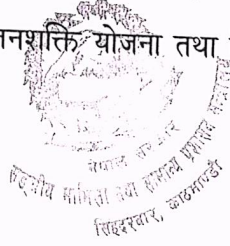 जनशक्ति योजना तथा
नेपाल सरकार
सङ्घीय मामिला तथा सामान्य प्रशासन
सिंहदरबार, काठमाण्डौ